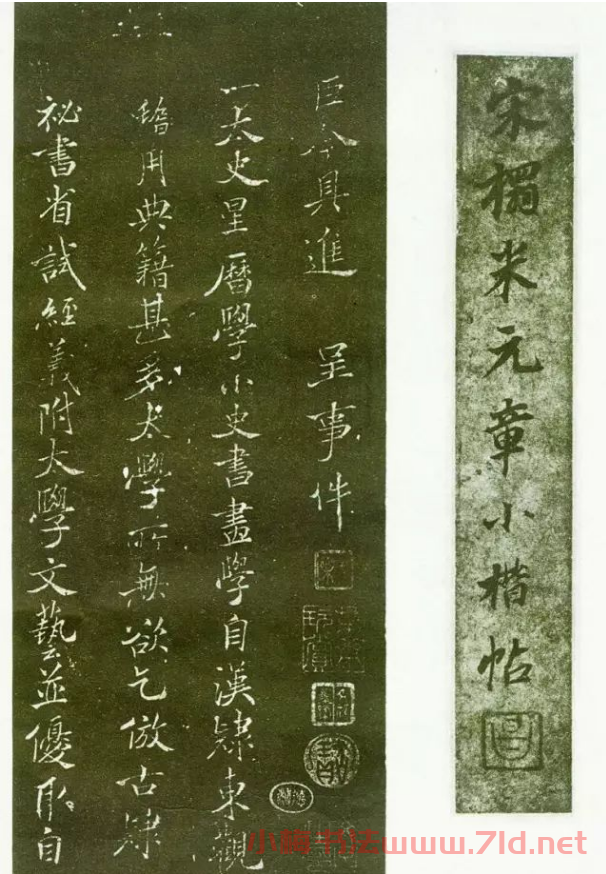 宋榻米元章小楷帖
臣今具進 呈事件
一太史星曆學小史書畫學自漢隸東觀
用典籍甚多太學所無欲乞倣古隸
祕書省試經義附太學文藝並優取自
小楷书法www.7ld.net